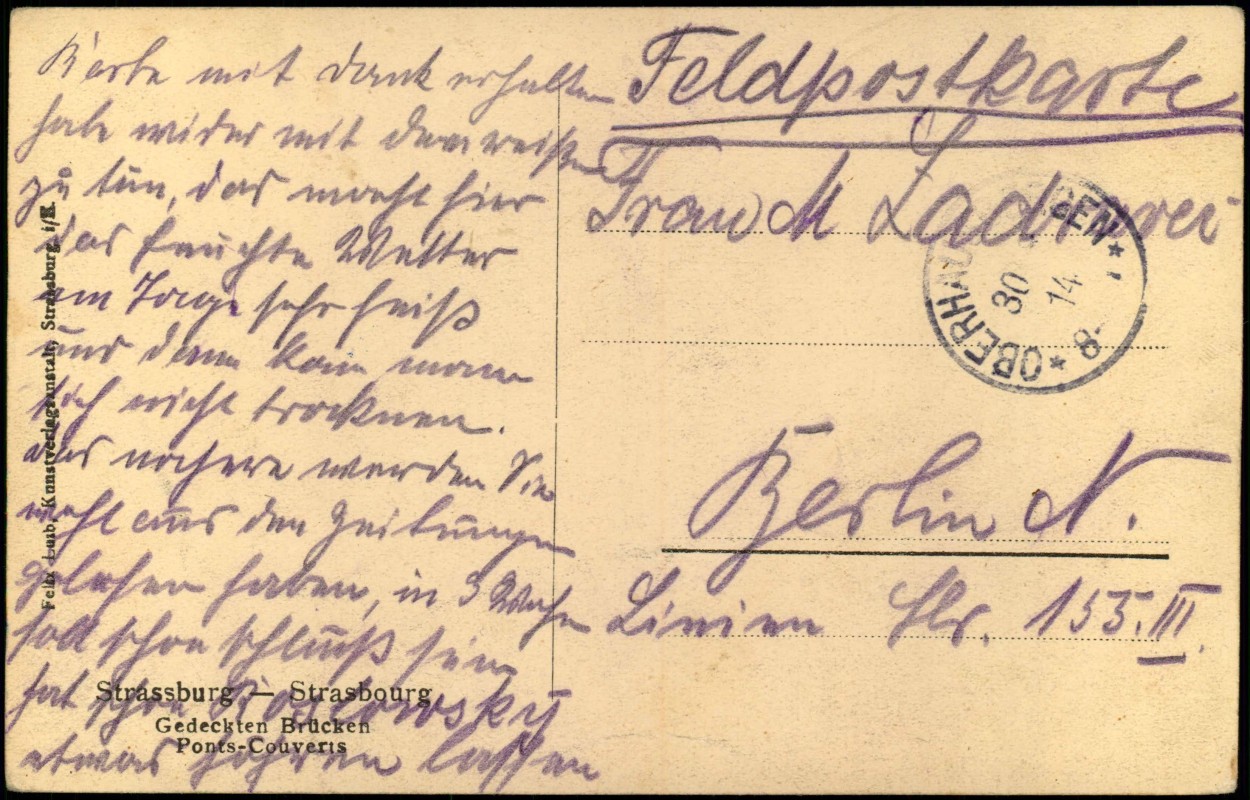 Karte mit Dank erhalten
habe wider mit dem reißen
zu tun, das macht hier
das feuchte Wetter
am Tage sehr heiß
und dann kan man
sich nicht trocknen.
das nähere werden Sie
wohl aus den Zeitungen
gelesen haben, in 3 Wochen
soll schon schluß sein
hat schon
etwas höhren lassen
Feldpostkarte
Frau M
Berlin N.
Linien Str. 153. III.
OBERHAU GEN
30 14
8-
Strassburg — Strasbourg
Gedeckten Brücken
Ponts-Couverts
Felix Luib, Kunstverlagsanstalt, Strassburg i/E.